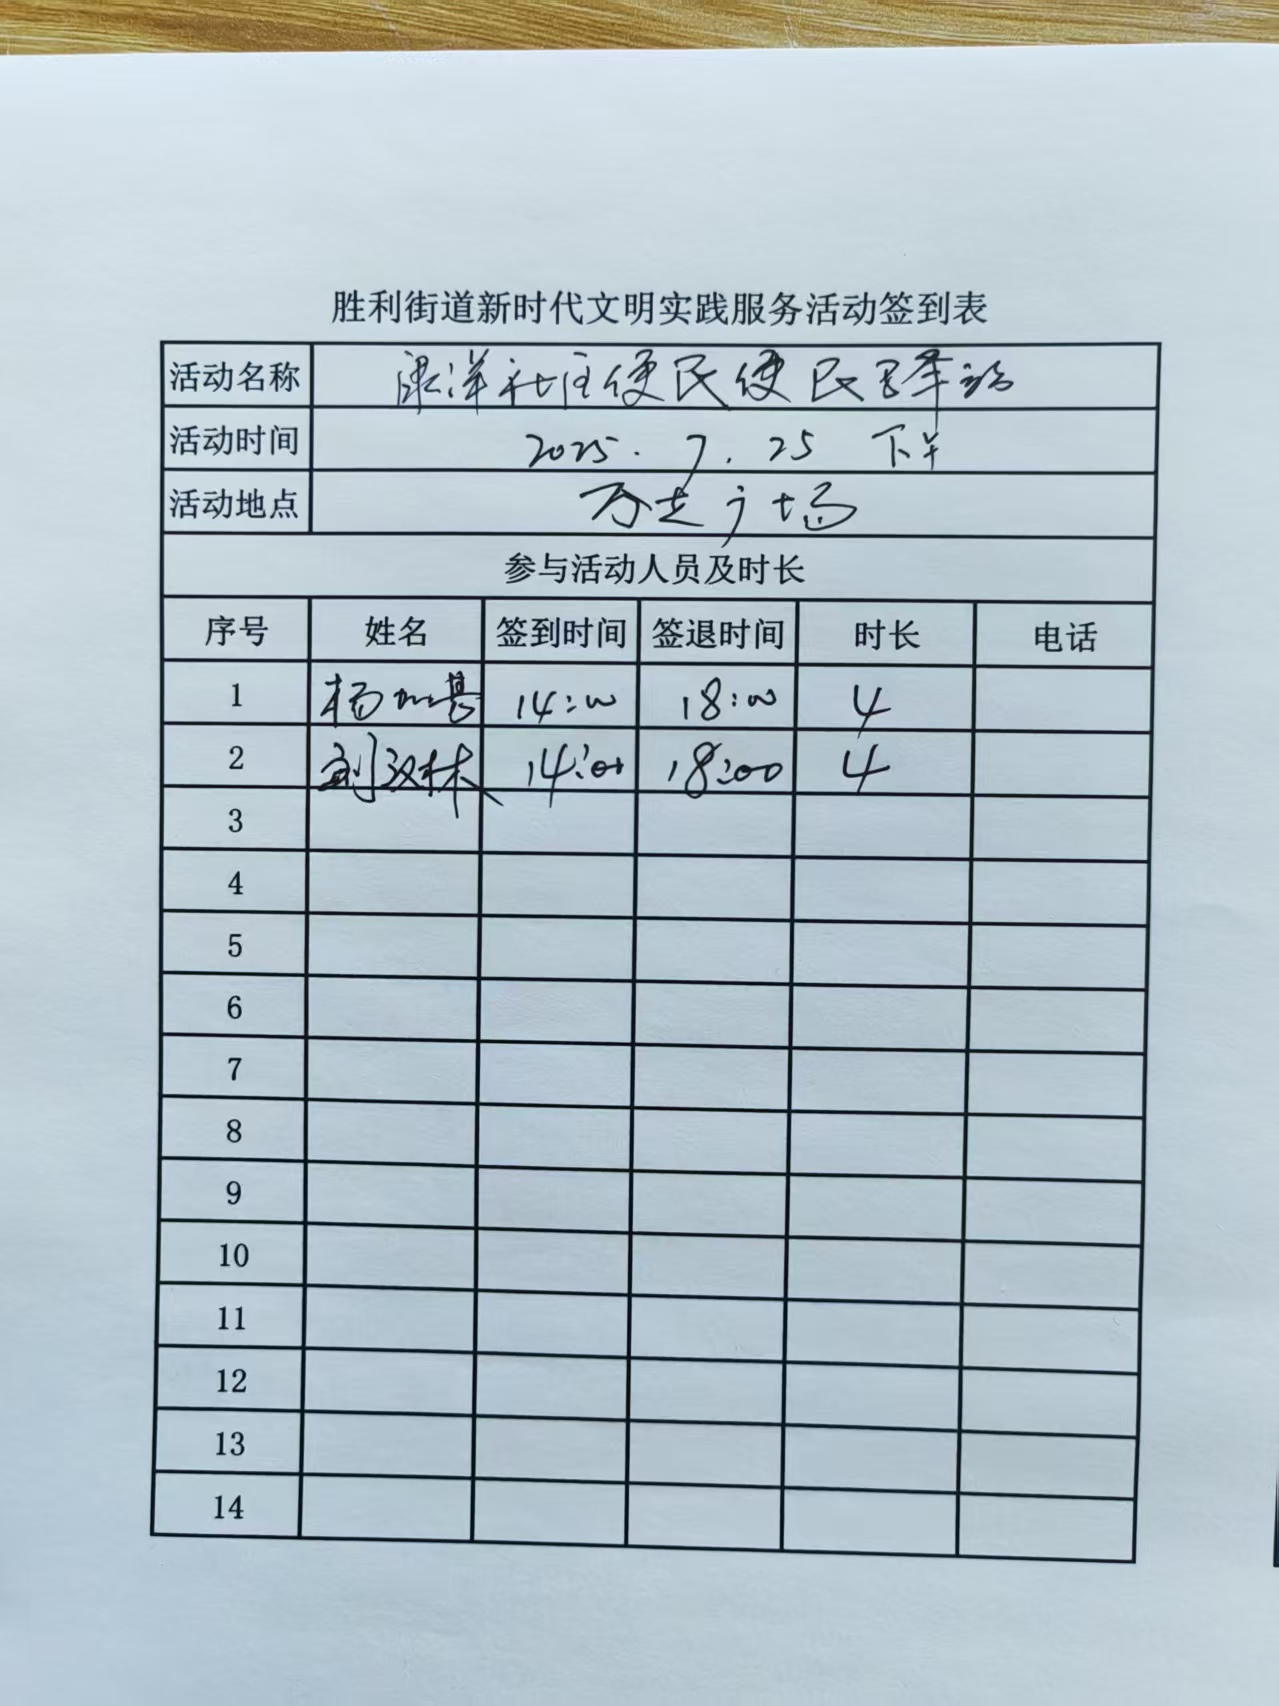 胜利街道新时代文明实践服务活动签到表
活动名称 洋社区便民便民驿站
活动时间 2025.7.25 下午
活动地点 万达广场
参与活动人员及时长
序号 姓名 签到时间 签退时间 时长 电话
1 杨 14:00 18:00 4
2 刘汉林 14:00 18:00 4
3
4
5
6
7
8
9
10
11
12
13
14